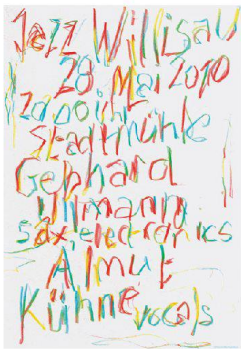 Jazz Willisau
28 Mai 2010
20 00 Uhr
Stadtmühle
Gebhard
Ullmann
sax, electronics
Almut
Kühne vocals